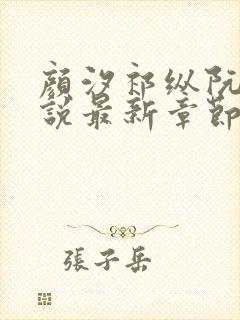 顏汐祁纵阮
說最新章節
張子岳